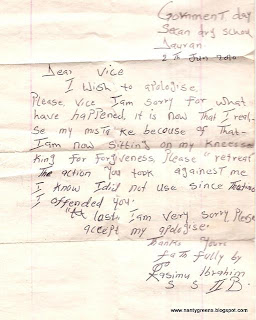 Government day
Secon dry school
Dauran
2th Jun 2010
Dear Vice
I wish to apologise.
Please, vice Iam sorry for what
have happened, it is now that I real-
se my musta ke becouse of that
Iam now sitting on my kneesse
king for forgiveness please "retreat
The action you took againest me
I know Idid not use since that
I offended you.
At last, Iam very sorry please
accept my apologise.
Thanks yours
fath fully by
Kasimu Ibrahim
S S II B
www.nantygreens.blogspot.com